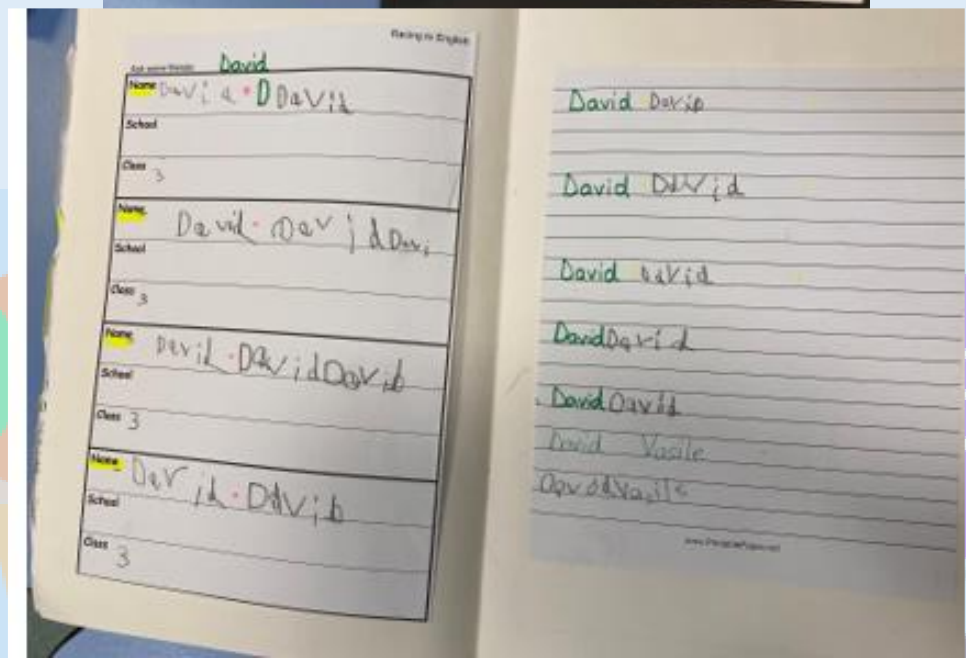 Racing to English
Ask some friends David
Name Davia • D David
School
Class 3
Name David • David Davi
School
Class 3
Name David • DavidDavib
School
Class 3
Name David • Ddvib
School
Class 3
David Davip
David Ddvid
David David
DavidDavid
David David
David Vasile